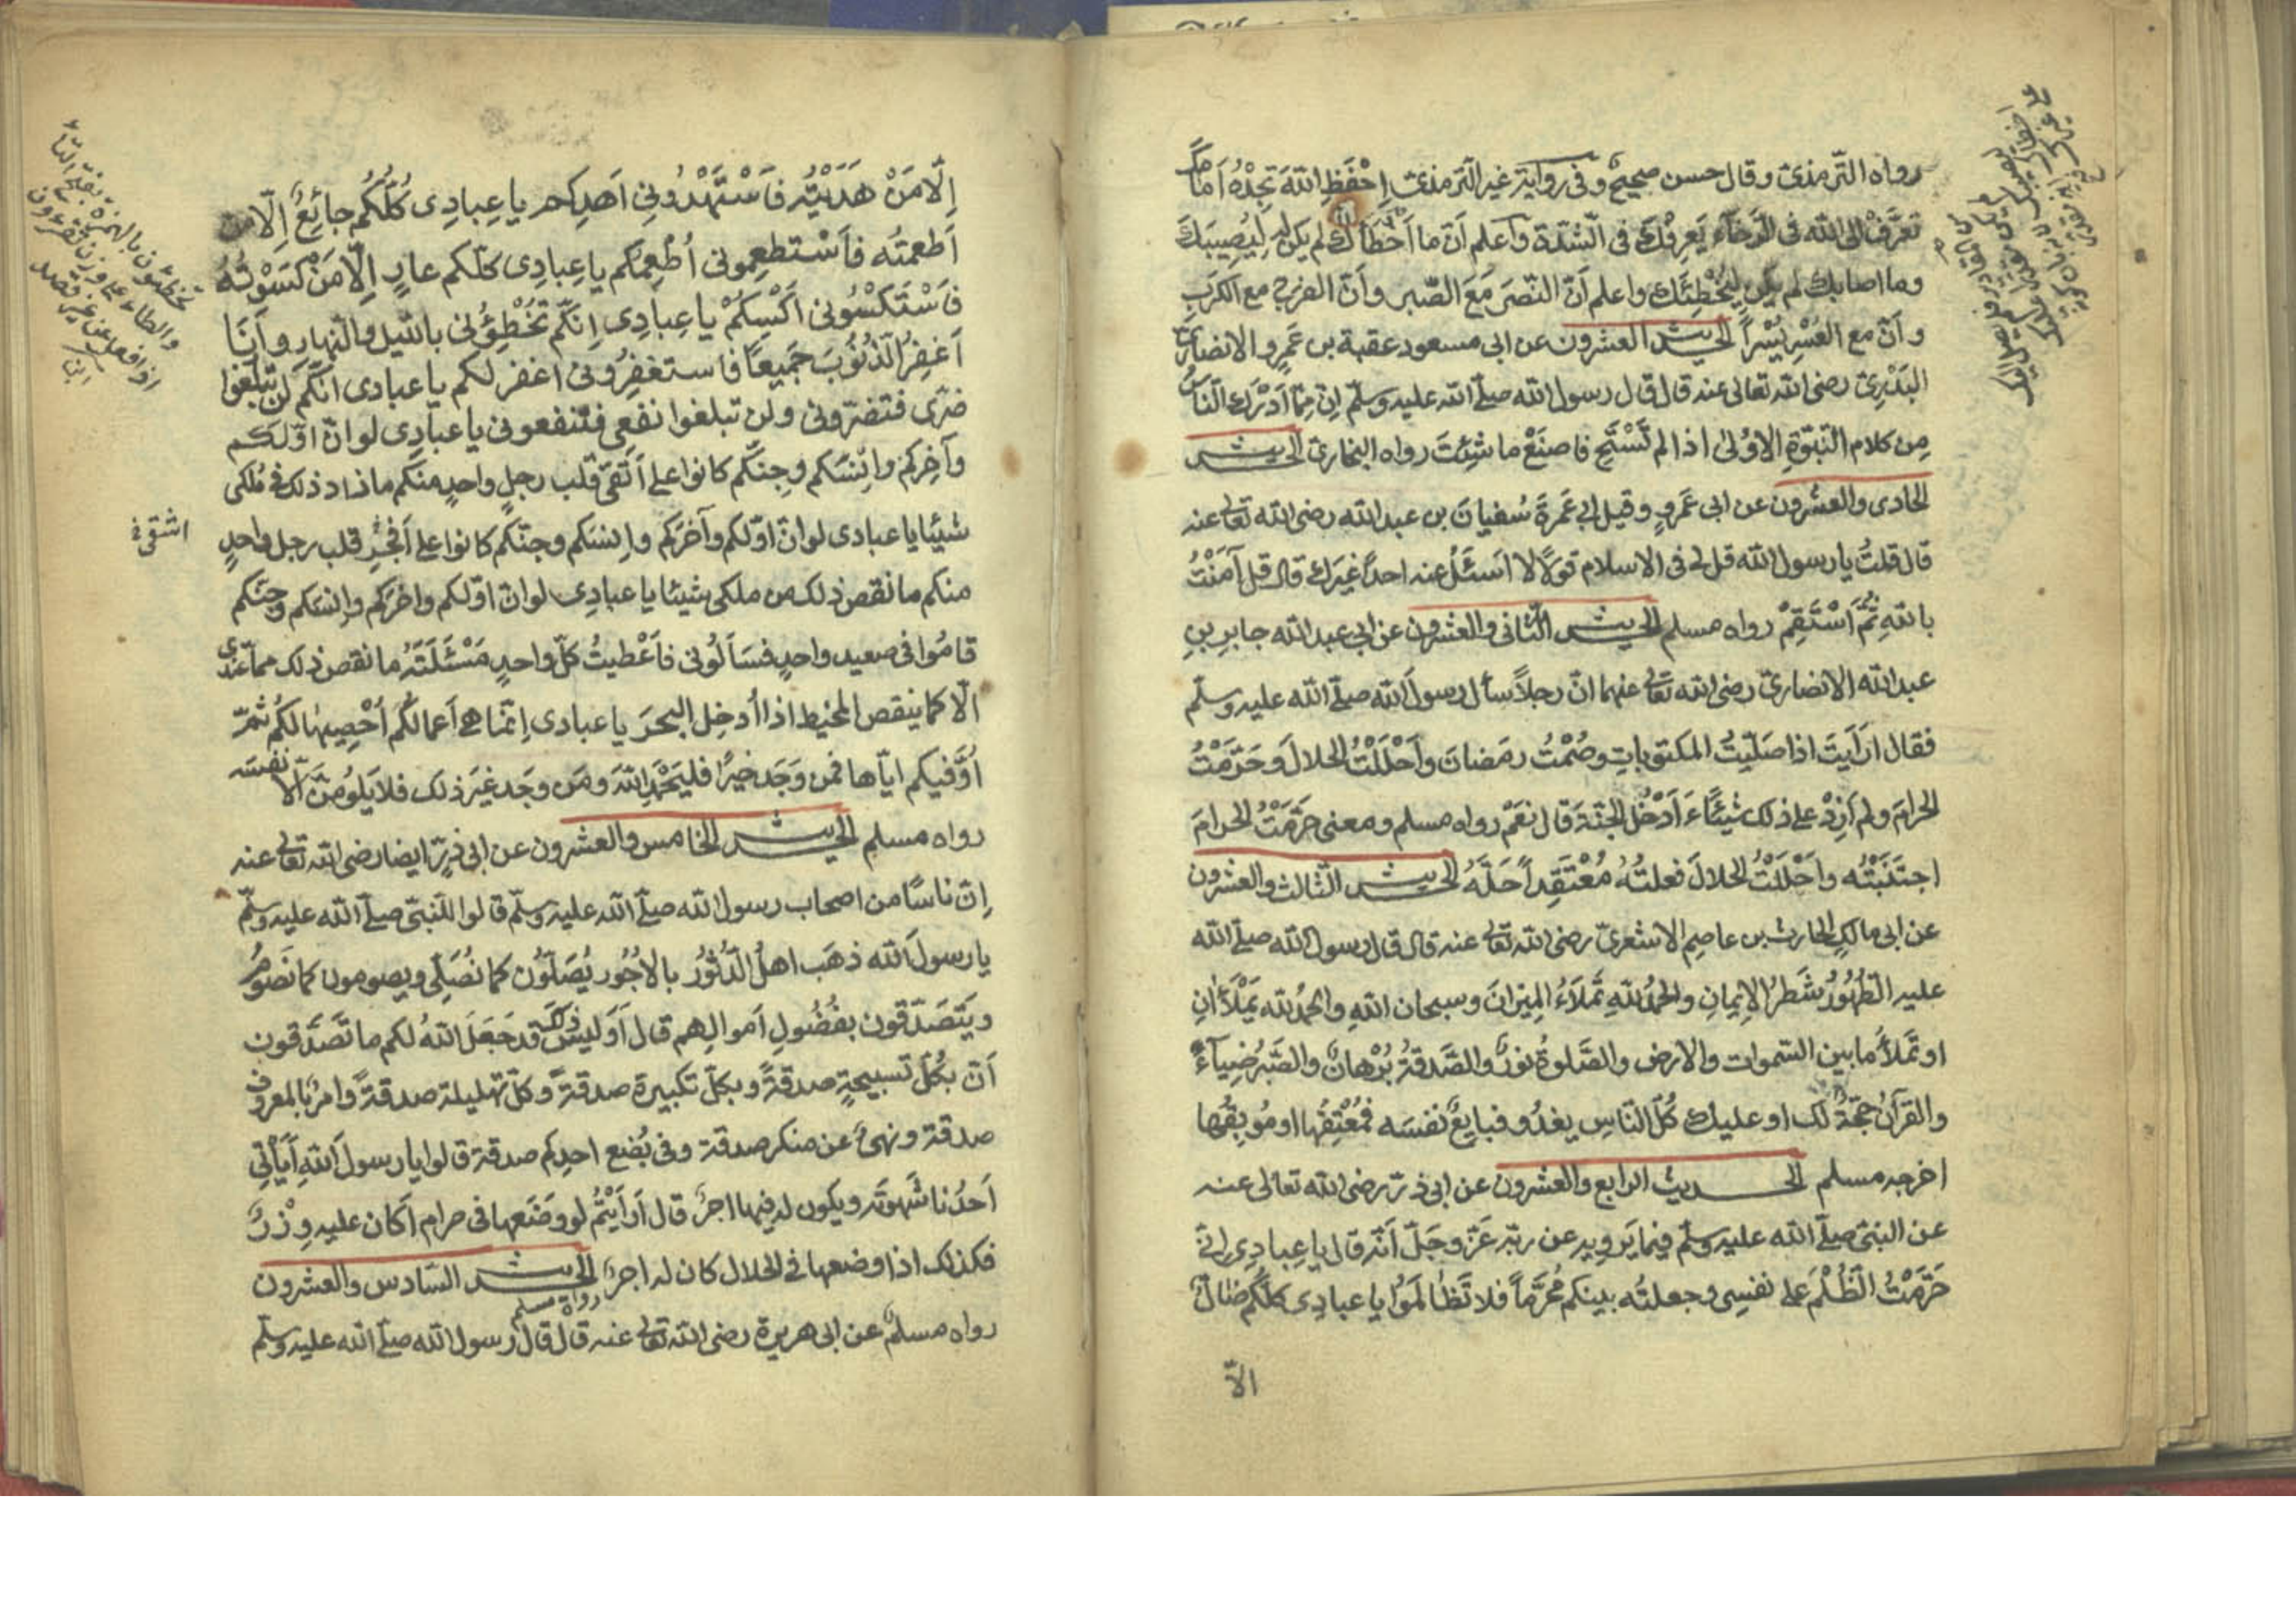 رواه الترمذىّ وقال حسن صحيحٌ وفى رواية غير الترمذىّ اِحْفَظِ اللّٰهَ تَجِدْهُ اَمَامَكَ
تعرَّفْ الى اللّٰه فى الرَّخآءِ يَعرِفْكَ فى الشّدّة وَاعلم اَنّ ما اَخْطَأَكَ لم يكن لِيُصِيبَكَ
وما اصابك لم يكن لِيُخْطِئَكَ واعلم اَنّ النّصرَ مَعَ الصّبر واَنّ الفرج مع الكَربِ
واَنّ مع العُسْرِ يُسْراً الحديث العشرون عن ابى مسعود عقبة بن عَمرٍو الانصارىّ
البَدْرِىّ رضى اللّٰه تعالى عنه قال قال رسول اللّٰه صلّى اللّٰه عليه وسلّم اِنّ مِمّا اَدْرَكَ النّاسُ
مِن كلام النّبوّةِ الاوُلىٰ اذا لم تَسْتَحِ فاصنَعْ ما شِئتَ رواه البخارىّ الحديث
الحادى والعشرون عن ابى عَمرٍو وقيل ابى عَمرَةَ سُفيانَ بن عبد اللّٰه رضى اللّٰه تعالى عنه
قال قلتُ يا رسول اللّٰه قل لى فى الاسلام قولًا لا اَسئَلُ عنه احداً غيرَك قال قل آمَنْتُ
باللّٰهِ ثُمَّ اسْتَقِمْ رواه مسلم الحديث الثّانى والعشرون عن ابى عبد اللّٰه جابرِ بنِ
عبد اللّٰه الانصارىّ رضى اللّٰه تعالى عنهما انّ رجلاً سأل رسولَ اللّٰه صلّى اللّٰه عليه وسلّم
فقال ارَاَيتَ اذا صَلّيتُ المكتوباتِ وصُمْتُ رمَضانَ واَحْلَلْتُ الحلالَ وحَرّمْتُ
الحرامَ ولم اَزِدْ على ذلك شيْئاً ءَاَدْخُلُ الجنّةَ قال نعَمْ رواه مسلم ومعنى حَرّمْتُ الحرامَ
اجتَنَبْتُه واَحْلَلْتُ الحلالَ فعلتُهُ مُعْتَقِداً حَلَّهُ الحديث الثّالث والعشرون
عن ابى مالكٍ الحارث بن عاصِم الاشعرىّ رضى اللّٰه تعالى عنه قال قال رسول اللّٰه صلّى اللّٰه
عليه الطُّهُورُ شَطْرُ الإيمانِ والحمدُ للّٰهِ تَملَأُ الميزانَ وسبحان اللّٰهِ والحمدُ للّٰه تَمْلَأٰنِ
او تَملَأُ ما بين السّموات والارض والصَّلوةُ نورٌ والصَّدقةُ بُرْهانٌ والصَّبرُ ضِيآءٌ
والقرآنُ حجّةٌ لك او عليك كُلّ النّاسِ يغدُو فبايعٌ نفسَه فمُعْتِقُها او مُوبِقُها
اخرجه مسلم الحديث الرابع والعشرون عن ابى ذرّ رضى اللّٰه تعالى عنه
عن النبىّ صلّى اللّٰه عليه وسلّم فيما يَرويه عن ربّه عَزّ وجَلّ اَنّه قال يا عِبادِى اِنّى
حَرّمْتُ الظُّلْمَ على نفسِى وجعلتُه بينكم مُحَرّماً فلا تَظٰالَمُوا يا عبادِى كلّكُم ضٰالٌّ
الاّ
اِلّا مَنْ هَدَيْتُه فَاسْتَهْدُونِى اَهدِكم يا عِبادِى كُلُّكُم جائِعٌ اِلّا من
اَطعمتُه فَاسْتطعِمونى اُطْعِمْكم يا عِبادِى كلّكم عارٍ اِلّا مَنْ كسَوْتُهُ
فَاسْتَكْسُونى اَكْسِكُمْ يا عِبادِى اِنّكم تُخْطِؤُنى باللّيل والنّهار واَنَا
اَغفِرُ الذّنُوبَ جَميعاً فاستغفِرُونى اغفر لكم يا عبادى انّكم لن تبلغوا
ضرّى فتضرّونى ولن تبلغوا نفعى فتنفعونى يا عبادِى لو انّ اوّلكم
وآخِرَكم واِنْسَكم وجِنّكم كانوا على اَتقى قلب رجلٍ واحدٍ منكم ما زاد ذلك فى مُلكى
شيئًا يا عبادى لو انّ اوّلكم وآخرَكم واِنسَكم وجنّكم كانوا على اَفجَرِ قلب رجل واحدٍ
منكم ما نقص ذلك من ملكى شيئًا يا عبادِى لو انّ اوّلكم واخرَكم واِنسَكم وجنّكم
قامُوا فى صعيد واحدٍ فسَألُونى فَاَعْطيتُ كلّ واحدٍ مَسْئَلَتَهُ ما نقص ذلك ممّا عندى
الّا كما ينقص المخيط اذا اُدخِل البحرَ يا عبادى اِنّما هى اَعمالُكُم اُحْصِيهٰا لكُم ثمّ
اُوَفّيكم ايّاها فمن وَجَد خيرًا فليَحْمَدِ اللّٰهَ ومَن وجَد غيرَ ذلك فلا يَلُومَنّ الّا نفسَه
رواه مسلم الحديث الخامس والعشرون عن ابى ذرّ ايضا رضى اللّٰه تعالى عنه
اِنّ ناسًا من اصحاب رسول اللّٰه صلّى اللّٰه عليه وسلّم قالوا للنّبىّ صلّى اللّٰه عليه وسلّم
يا رسولَ اللّٰه ذهَب اهلُ الدُّثُورِ بالاُجُور يُصَلّون كما نُصَلّى ويصومون كما نَصُومُ
ويَتَصَدّقون بفُضُولِ اَموالِهم قال اَوَليسَ ذلك قد جَعَلَ اللّٰهُ لكم ما تَصَدّقون
اَنّ بكُلّ تسبيحةٍ صدقةً وبكلّ تكبيرة صدقةً وكلّ تهليلة صدقةً وامرٌ بالمعروف
صدقة ونهىٌ عن منكر صدقة وفى بُضع احدِكم صدقة قالوا يا رسول اللّٰهِ اَيَأتِى
اَحدُنا شَهوتَه ويكون له فيها اجرٌ قال اَرَاَيْتُم لو وضَعها فى حرام اَكان عليه وِزْرٌ
فكذلك اذا وضعها فى الحلال كان له اجرٌ رواه مسلم الحديث السّادس والعشرون
رواه مسلم عن ابى هريرة رضى اللّٰه تعالى عنه قال قال رسول اللّٰه صلّى اللّٰه عليه وسلّم